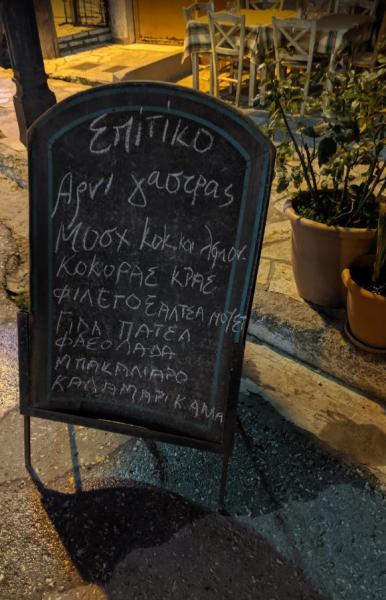 Σπίτικο
Αρνί γάστρας
Μοσχ κοκ.κι
ΚΟΚΟΡΑΣ ΚΡΑΣ
ΦΙΛΕΤΟ ΣΑΛΤΣΑ
ΓΙΔΑ ΠΑΤΕΛ
ΦΑΣΟΛΑΔΑ
ΜΠΑΚΑΛΙΑΡΟ
ΚΑΛΑΜΑΡΙ ΚΑΜΑ